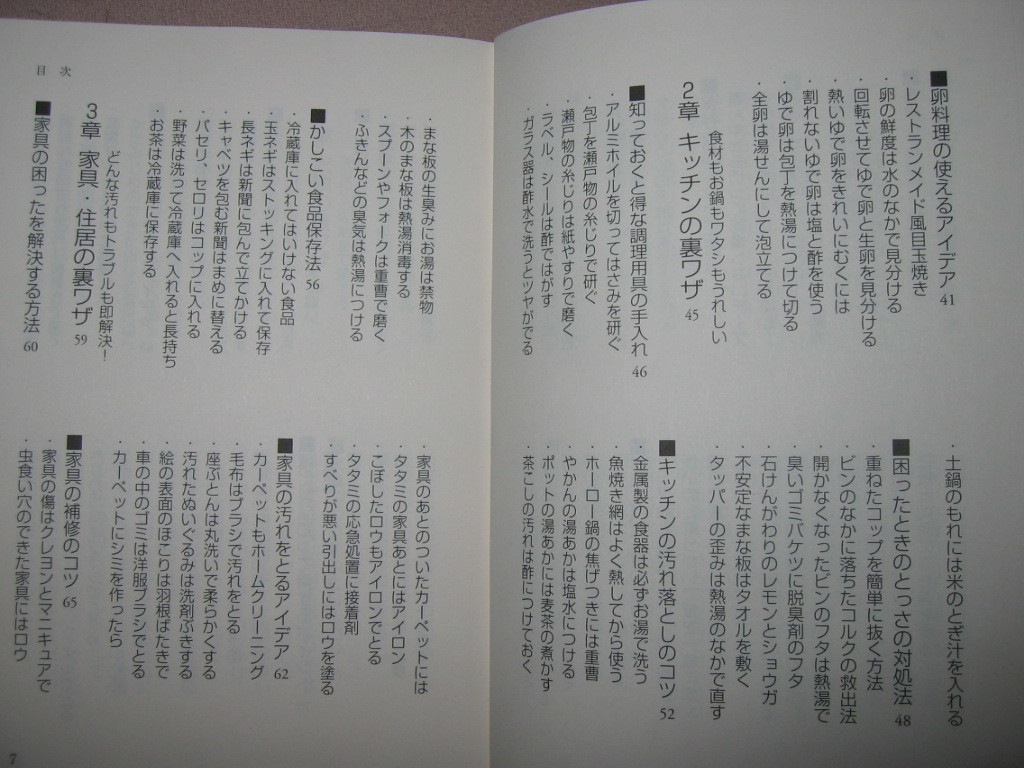 ■卵料理の使えるアイデア 41
・レストランメイド風目玉焼き
・卵の鮮度は水のなかで見分ける
・回転させてゆで卵と生卵を見分ける
・熱いゆで卵をきれいにむくには
・割れないゆで卵は塩と酢を使う
・ゆで卵は包丁を熱湯につけて切る
・全卵は湯せんにして泡立てる
2章 キッチンの裏ワザ 45
食材もお鍋もワタシもうれしい
■知っておくと得な調理用具の手入れ 46
・アルミホイルを切ってはさみを研ぐ
・包丁を瀬戸物の糸じりで研ぐ
・瀬戸物の糸じりは紙やすりで磨く
・ラベル、シールは酢ではがす
・ガラス器は酢水で洗うとツヤがでる
・土鍋のもれには米のとぎ汁を入れる
■困ったときのとっさの対処法 48
・重ねたコップを簡単に抜く方法
・ビンのなかに落ちたコルクの救出法
・開かなくなったビンのフタは熱湯で
・臭いゴミバケツに脱臭剤のフタ
・石けんがわりのレモンとショウガ
・不安定なまな板はタオルを敷く
・タッパーの歪みは熱湯のなかで直す
■キッチンの汚れ落としのコツ 52
・金属製の食器は必ずお湯で洗う
・魚焼き網はよく熱してから使う
・ホーロー鍋の焦げつきには重曹
・やかんの湯あかは塩水につける
・ポットの湯あかには麦茶の煮かす
・茶こしの汚れは酢につけておく
目次
・まな板の生臭みにお湯は禁物
・木のまな板は熱湯消毒する
・スプーンやフォークは重曹で磨く
・ふきんなどの臭気は熱湯につける
■かしこい食品保存法 56
・冷蔵庫に入れてはいけない食品
・玉ネギはストッキングに入れて保存
・長ネギは新聞に包んで立てかける
・キャベツを包む新聞はまめに替える
・パセリ、セロリはコップに入れる
・野菜は洗って冷蔵庫へ入れると長持ち
・お茶は冷蔵庫に保存する
3章 家具・住居の裏ワザ 59
どんな汚れもトラブルも即解決!
■家具の困ったを解決する方法 60
・家具のあとのついたカーペットには
・タタミの家具あとにはアイロン
・こぼしたロウもアイロンでとる
・タタミの応急処置に接着剤
・すべりが悪い引出しにはロウを塗る
■家具の汚れをとるアイデア 62
・カーペットもホームクリーニング
・毛布はブラシで汚れをとる
・座ぶとんは丸洗いで柔らかくする
・汚れたぬいぐるみは洗剤ぶきする
・絵の表面のほこりは羽根ばたきで
・車の中のゴミは洋服ブラシでとる
・カーペットにシミを作ったら
■家具の補修のコツ 65
・家具の傷はクレヨンとマニキュアで
・虫食い穴のできた家具にはロウ
7